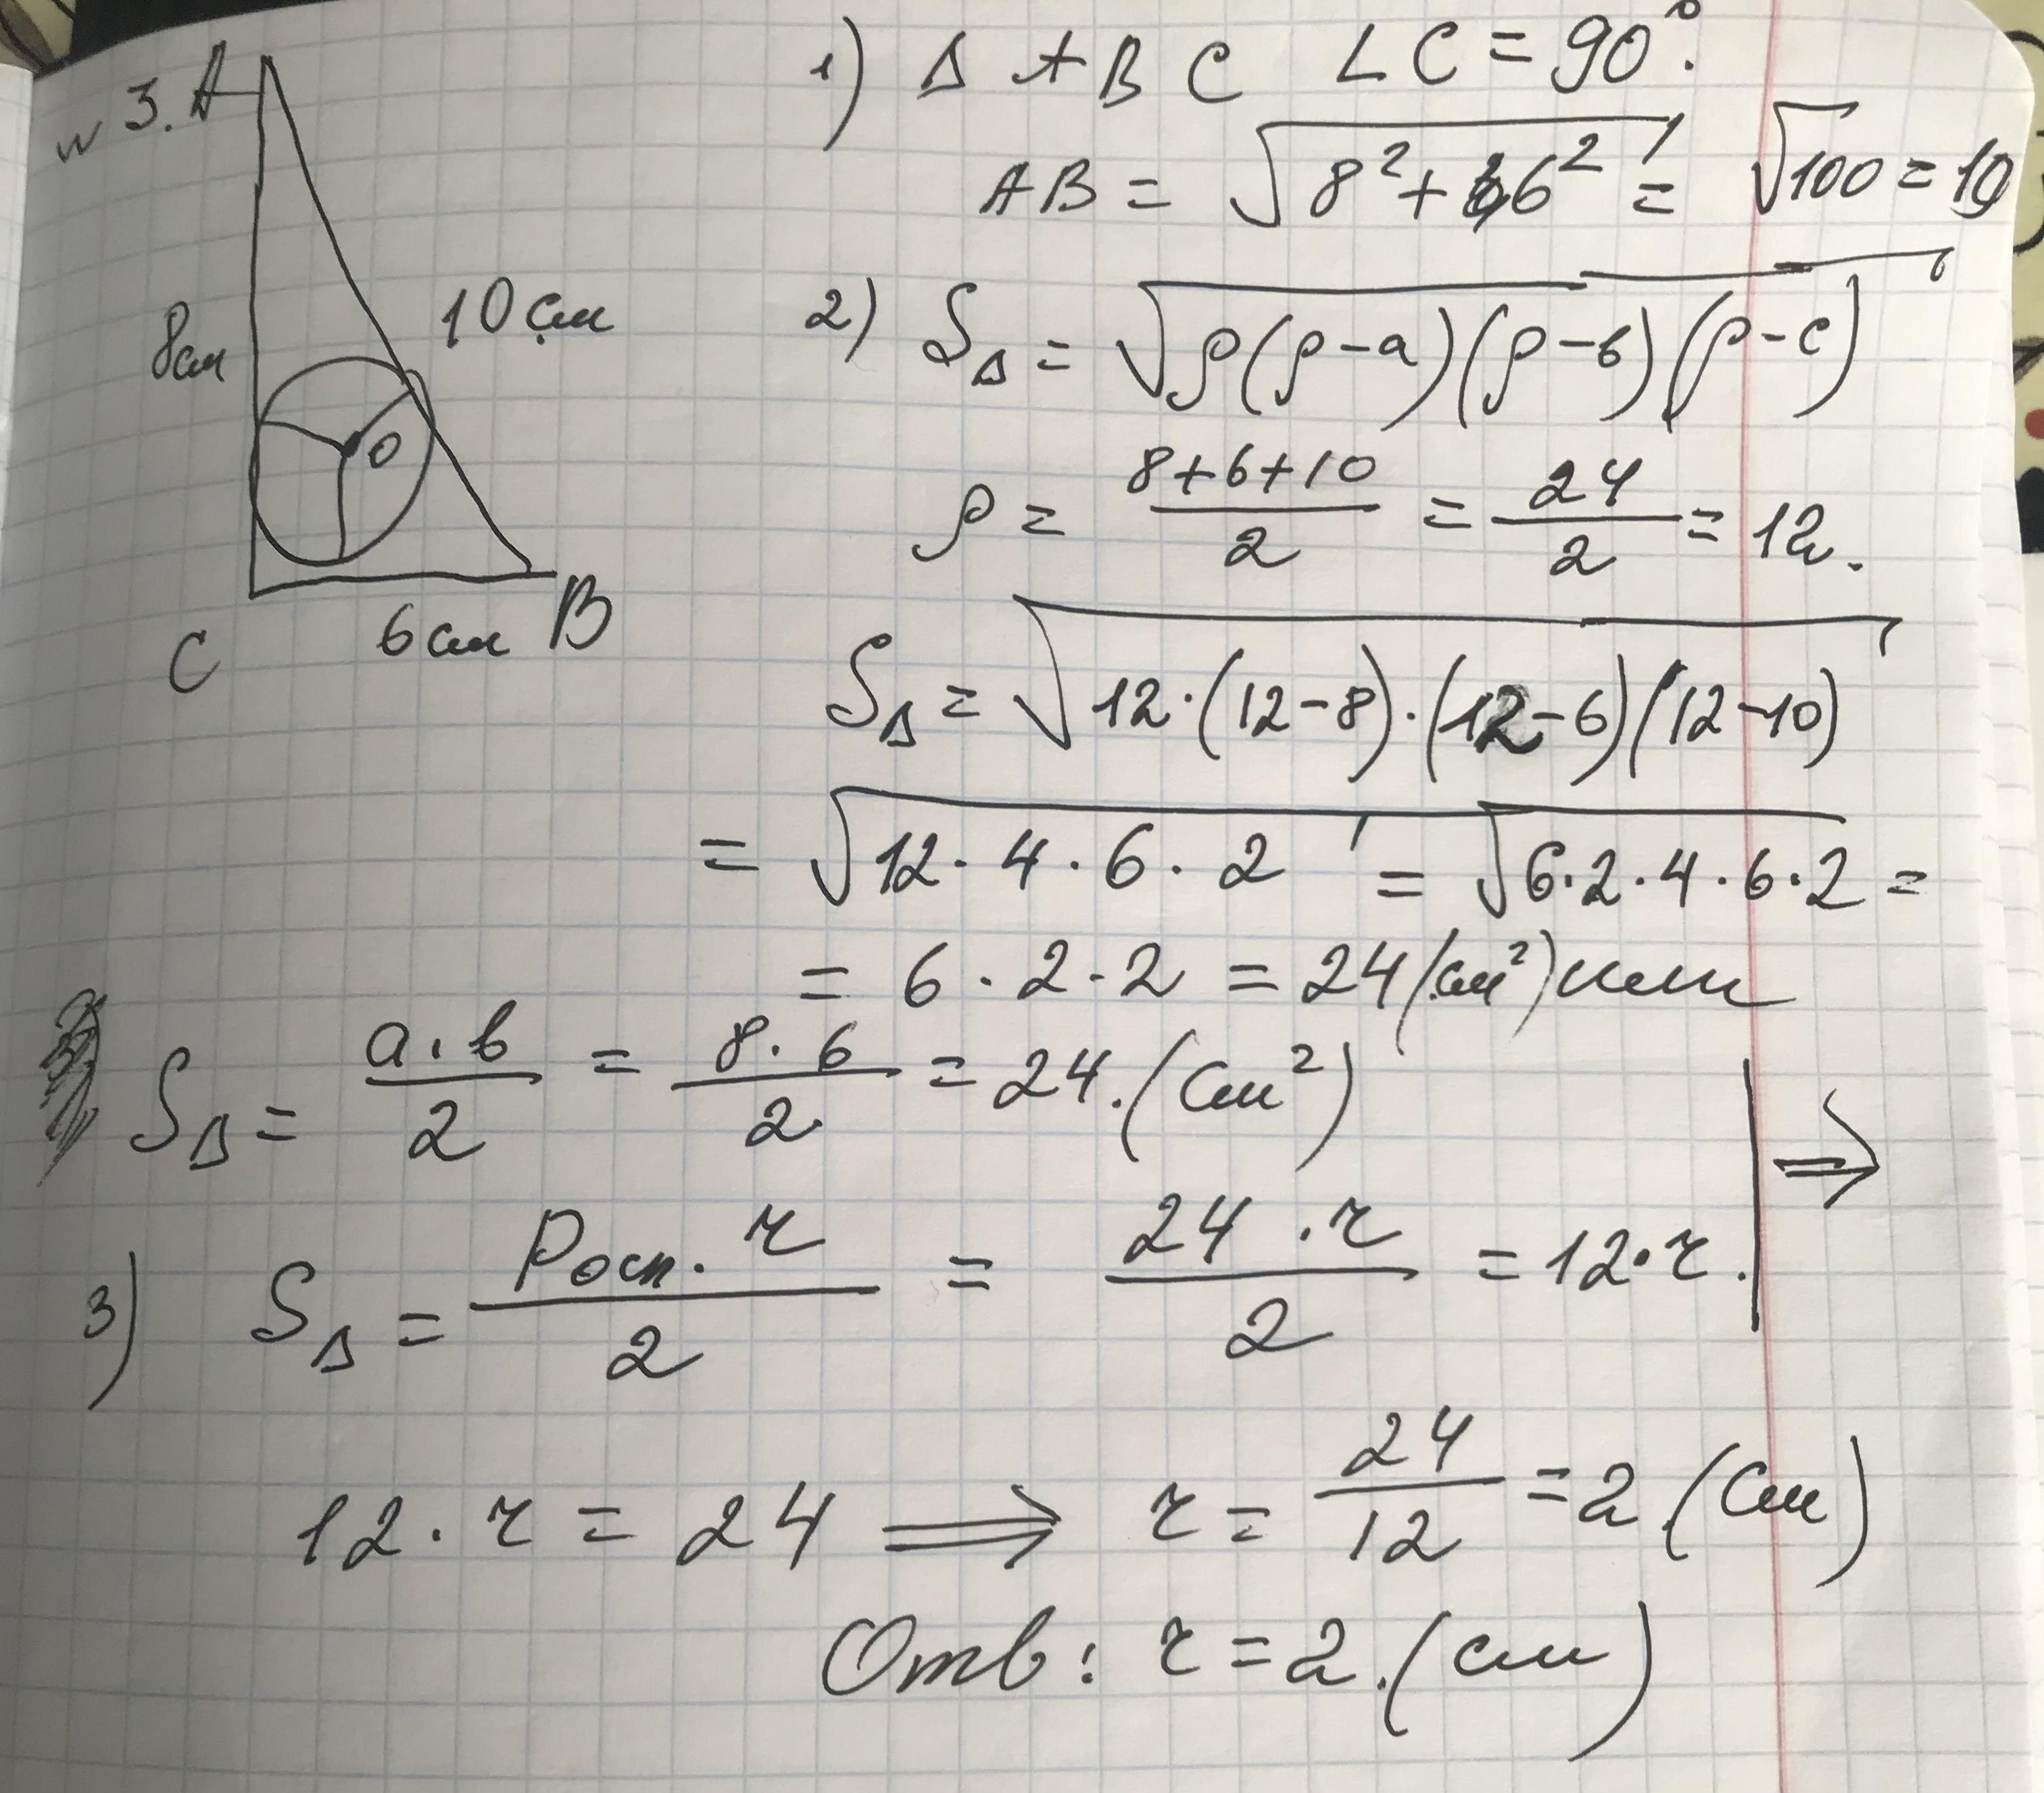 № 3. A
8см
10 см
O
C
6 см B
1) Δ ABC ∠C = 90°.
AB = √(8² + 6²) = √100 = 10
2) S_Δ = √(p(p-a)(p-b)(p-c))
p = (8+6+10)/2 = 24/2 = 12.
S_Δ = √(12·(12-8)·(12-6)(12-10))
= √(12·4·6·2) = √(6·2·4·6·2) =
= 6·2·2 = 24 (см²) или
S_Δ = (a·b)/2 = (8·6)/2 = 24.(см²)
3) S_Δ = (Pосн.·r)/2 = (24·r)/2 = 12·r. | ⇒
12·r = 24 ⟹ r = 24/12 = 2 (см)
Отв: r = 2.(см)